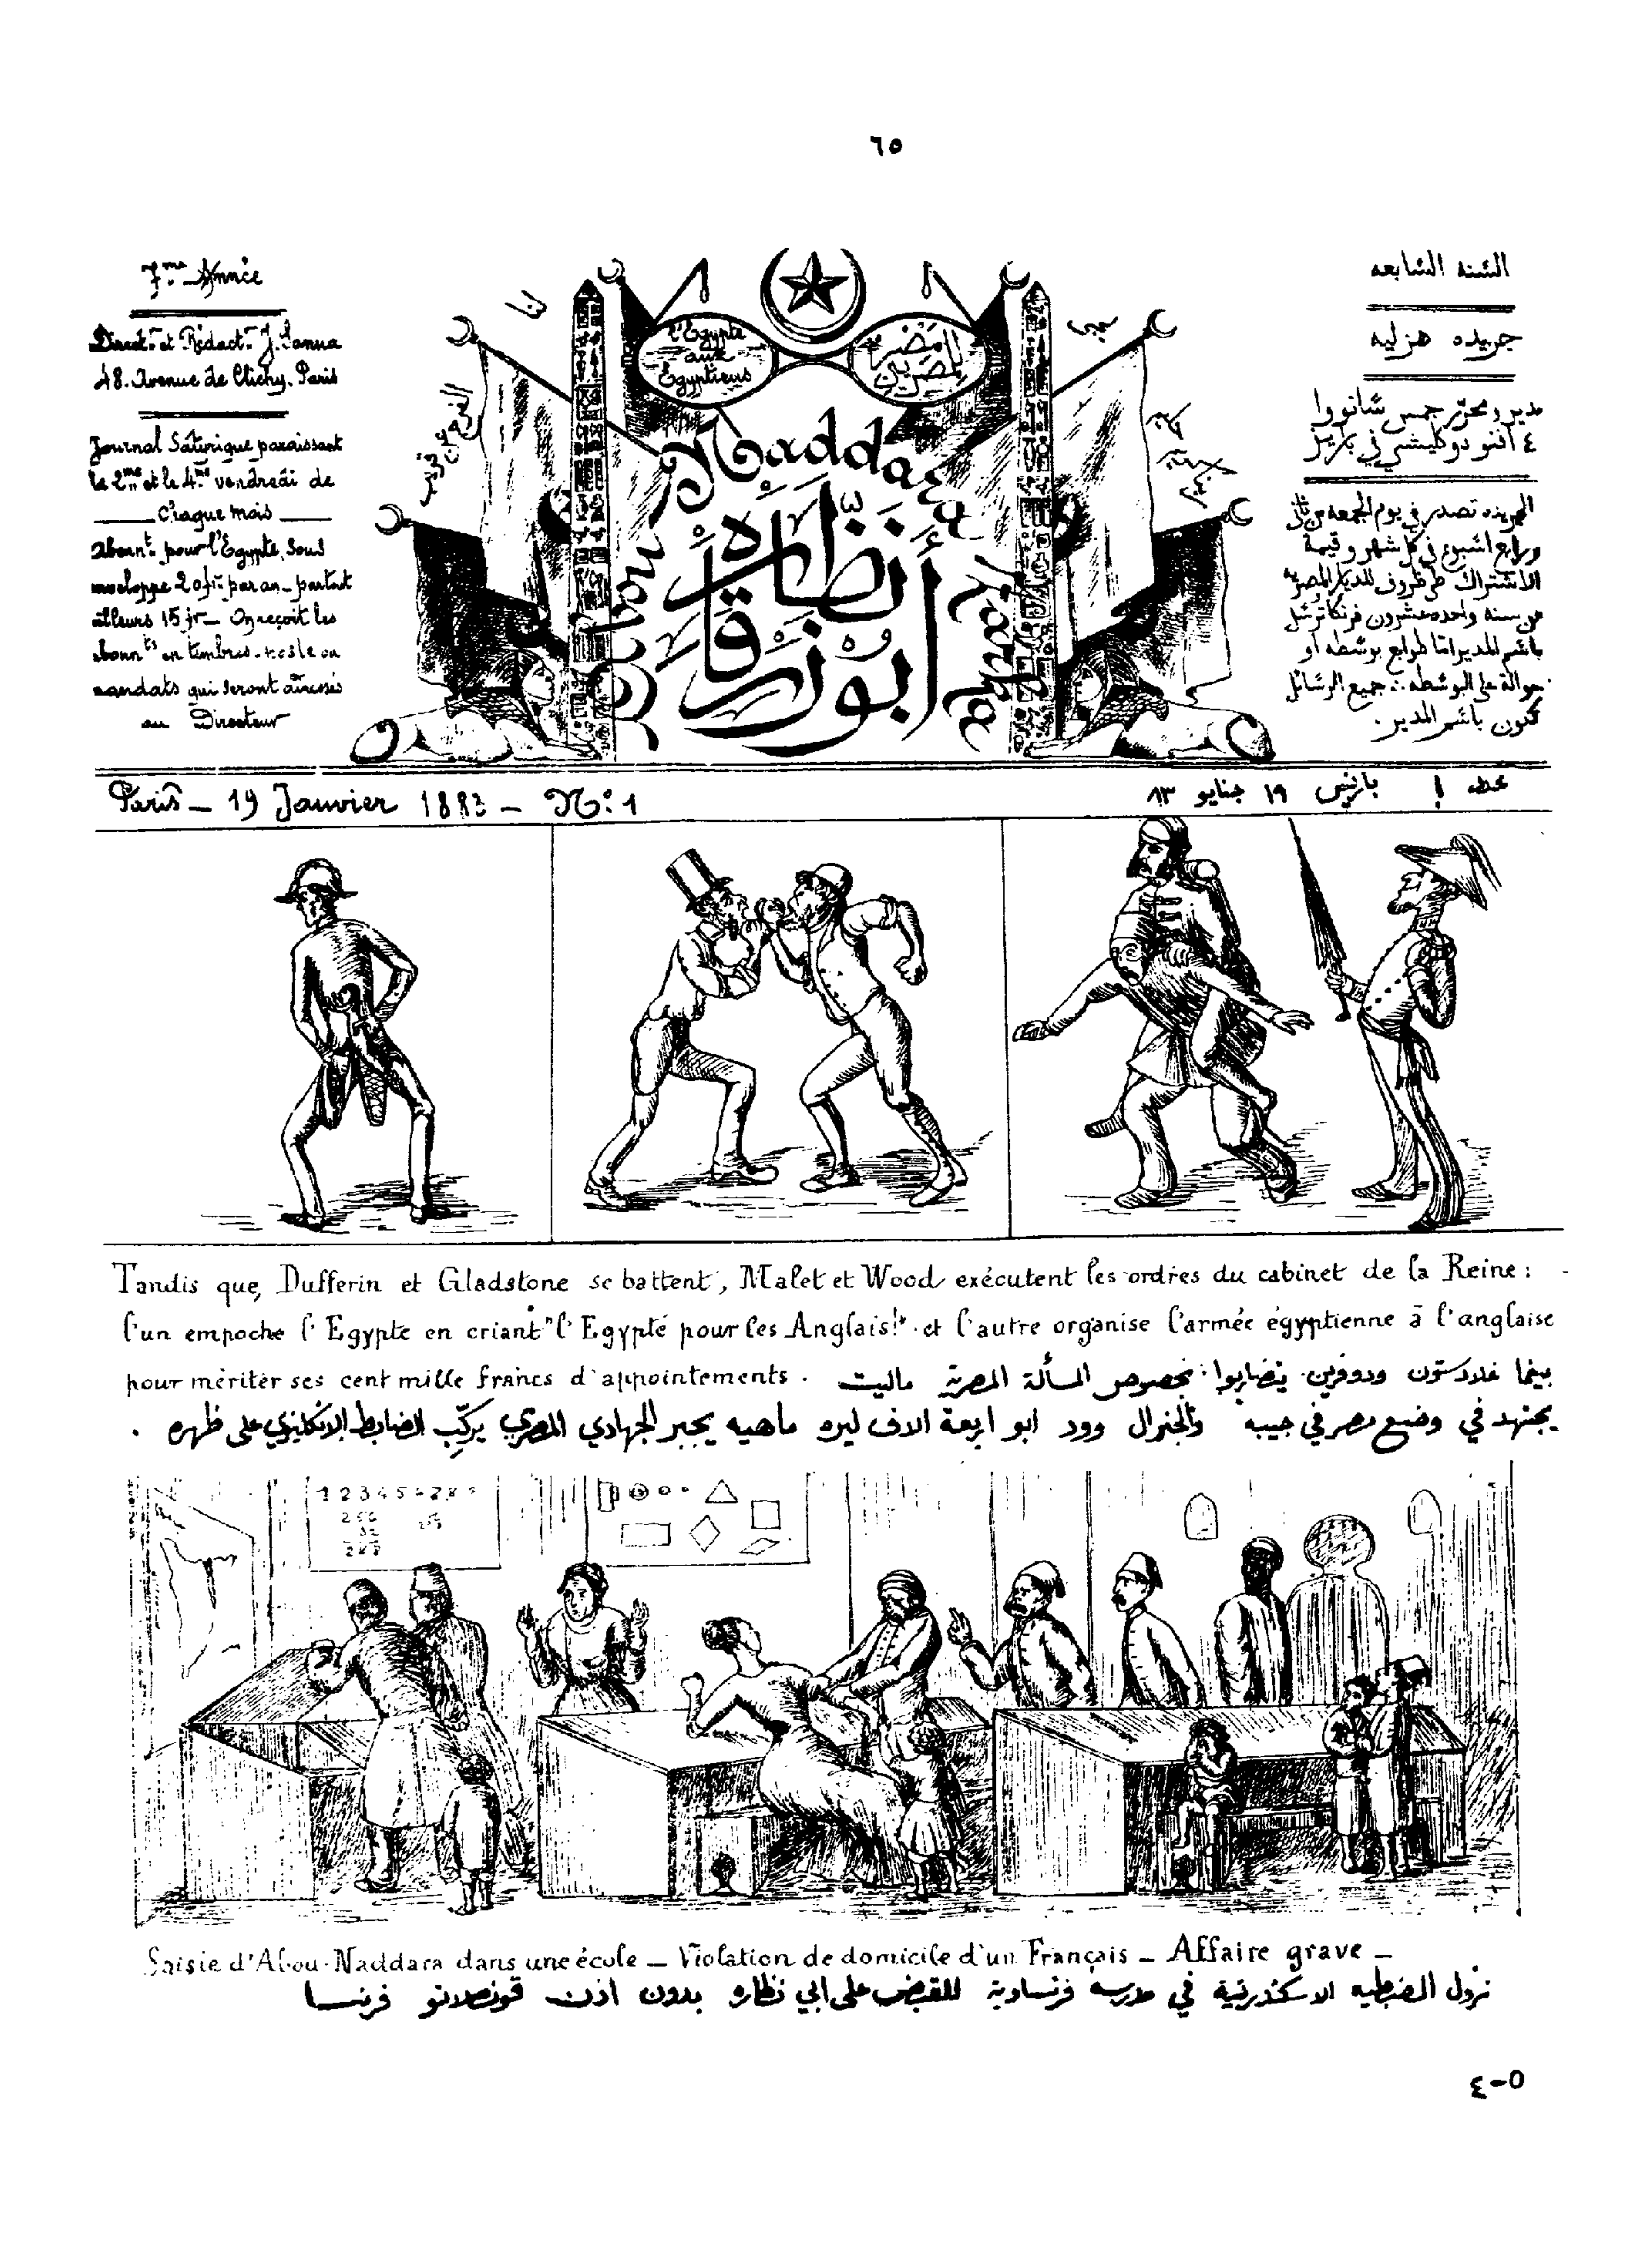 ٦٥
7.me Année
Direct.r et Rédact.r J. Sanua
48. Avenue de Clichy. Paris
Journal Satirique paraissant
le 2me et le 4me vendredi de
chaque mois
Abonnt. pour l'Egypte, sous
enveloppe 20 fr. par an - partout
ailleurs 15 fr - On reçoit les
abonnts en timbres-poste ou
mandats qui seront adressés
au Directeur
l'Egypte
aux
Egyptiens
مصر
للمصريين
Abou Naddara Zarka
أبو نظارة زرقا
السنه السابعه
جريده هزليه
مدير ومحرّر جمس سانووا
٤ افنو دو كليشي في باريز
الجريده تصدر في يوم الجمعه من ثاني
ورابع اسبوع في كل شهر وقيمة
الاشتراك في ظروف للديار المصريه
عن سنه واحده عشرون فرنكا ترسل
باسم المدير اما طوابع بوسطه او
حوالة على البوسطه جميع الرسائل
تكون باسم المدير.
Paris - 19 Janvier 1883 - N:o 1
عدد ١ باريس ١٩ جنايو ٨٣
Tandis que, Dufferin et Gladstone se battent, Malet et Wood exécutent les ordres du cabinet de la Reine :
l'un empoche l'Egypte en criant "l'Egypte pour les Anglais!" et l'autre organise l'armée égyptienne à l'anglaise
pour mériter ses cent mille francs d'appointements.
بينما غلادستون ودوفرين يتضاربوا بخصوص المسألة المصرية ماليت
يجتهد في وضع مصر في جيبه والجنرال وود ابو اربعة الاف ليره ماهيه يجبر الجهادي المصري يركّب الضابط الانكليزي على ظهره .
1 2 3 4 5 6 7 8 9
Saisie d'Abou-Naddara dans une école - Violation de domicile d'un Français - Affaire grave -
نزول الضبطيه الاسكندرية في مدرسة فرنساوية للقبض على ابي نظاره بدون اذن قونصلاتو فرنسا
٤-٥